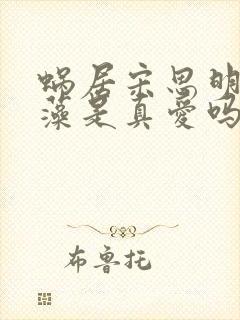 蜗居宋思明
藻是真爱吗
布鲁托